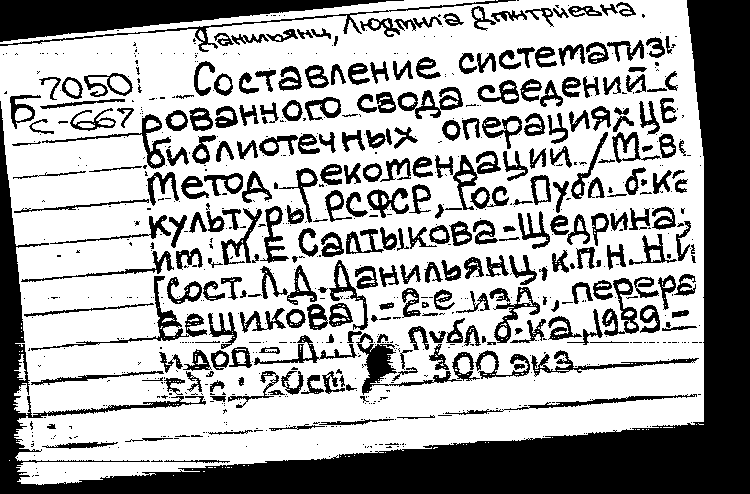 Данильянц, Людмила Дмитриевна.
Б 7050
С-667
Составление системати
рованного свода сведений о
библиотечных операциях ЦБ
Метод. рекомендации / М-в
культуры РСФСР, Гос. Публ. б-ка
им. М.Е. Салтыкова-Щедрина;
[Сост. Л.Д. Данильянц, к.п.н. Н.И
Вещикова]. - 2-е изд., перера
и доп. - Л.: Гос. Публ. б-ка, 1989. -
20 cm. - 300 экз.